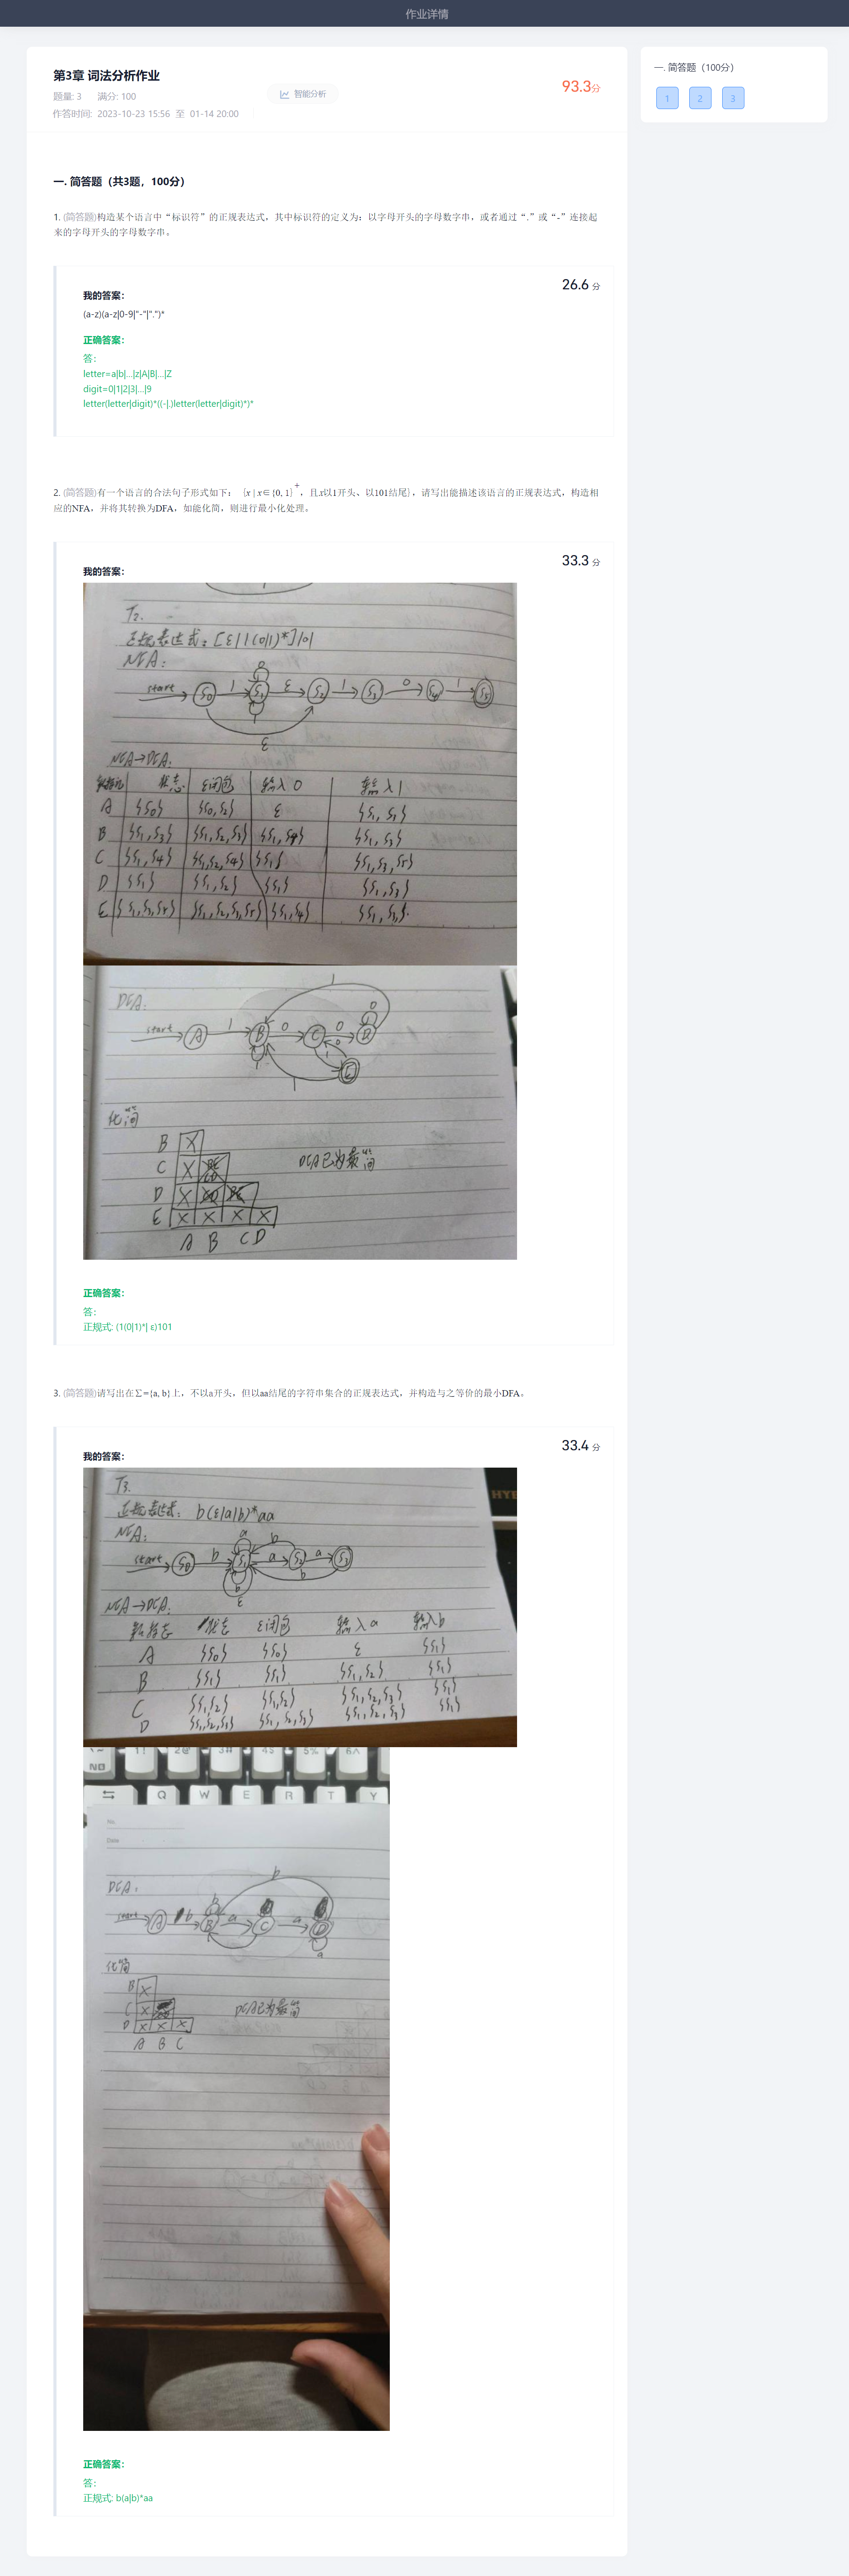 作业详情
第3章 词法分析作业
题量: 3 满分: 100
智能分析
93.3分
作答时间: 2023-10-23 15:56 至 01-14 20:00
一. 简答题（100分）
1 2 3
一. 简答题（共3题，100分）
1. (简答题)构造某个语言中“标识符”的正规表达式，其中标识符的定义为：以字母开头的字母数字串，或者通过“.”或“-”连接起
来的字母开头的字母数字串。
26.6 分
我的答案：
(a-z)(a-z|0-9|"-"|".")*
正确答案：
答：
letter=a|b|...|z|A|B|...|Z
digit=0|1|2|3|...|9
letter(letter|digit)*((-|.)letter(letter|digit)*)*
2. (简答题)有一个语言的合法句子形式如下： {x | x∈{0, 1}+，且x以1开头、以101结尾}，请写出能描述该语言的正规表达式，构造相
应的NFA，并将其转换为DFA，如能化简，则进行最小化处理。
33.3 分
我的答案：
T2.
正规表达式：[ε|1(0|1)*]101
NFA:
start S0 1 S1 ε S2 1 S3 0 S4 1 S5
0
1
ε
NFA→DFA:
状态 ε闭包 输入0 输入1
A {S0} {S0,S2} ε {S1,S3}
B {S1,S3} {S1,S2,S3} {S1,S4} {S1,S3}
C {S1,S4} {S1,S2,S4} {S1} {S1,S3,S5}
D {S1} {S1,S2} {S1} {S1,S3}
E {S1,S3,S5} {S1,S2,S3,S5} {S1,S4} {S1,S3}
DFA:
start A 1 B 0 C 0 D
化简
B X
C X
D X
E X X X X
A B C D
DFA已为最简
正确答案：
答：
正规式: (1(0|1)*| ε)101
3. (简答题)请写出在∑={a, b}上，不以a开头，但以aa结尾的字符串集合的正规表达式，并构造与之等价的最小DFA。
33.4 分
我的答案：
T3.
正规表达式：b(ε|a|b)*aa
NFA:
start S0 b S1 a S2 a S3
NFA→DFA:
状态 ε闭包 输入a 输入b
A {S0} {S0} ε {S1}
B {S1} {S1} {S1,S2} {S1}
C {S1,S2} {S1,S2} {S1,S2,S3} {S1}
D {S1,S2,S3} {S1,S2,S3} {S1,S2,S3} {S1}
Q W E R T Y
No.
Date
DFA:
start A b B a C a D
化简
B X
C X
D X X X
A B C
DFA已为最简
正确答案：
答：
正规式: b(a|b)*aa